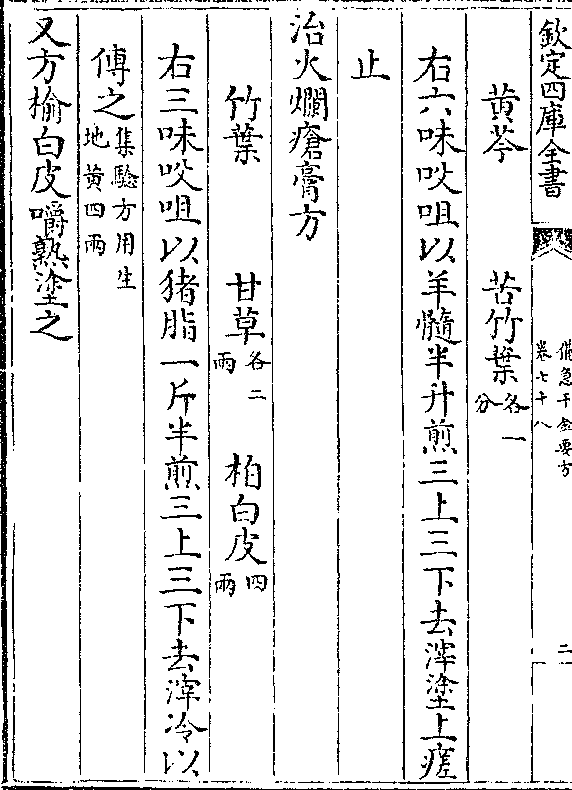 欽定四庫全書
備急千金要方
卷七十八
二
黄芩　苦竹葉各一分
右六味㕮咀以羊髓半升煎三上三下去滓塗上瘥
止
治火爛瘡膏方
竹葉　甘草各二兩　柏白皮四兩
右三味㕮咀以猪脂一斤半煎三上三下去滓冷以
傅之集驗方用生地黄四兩
又方榆白皮嚼熟塗之